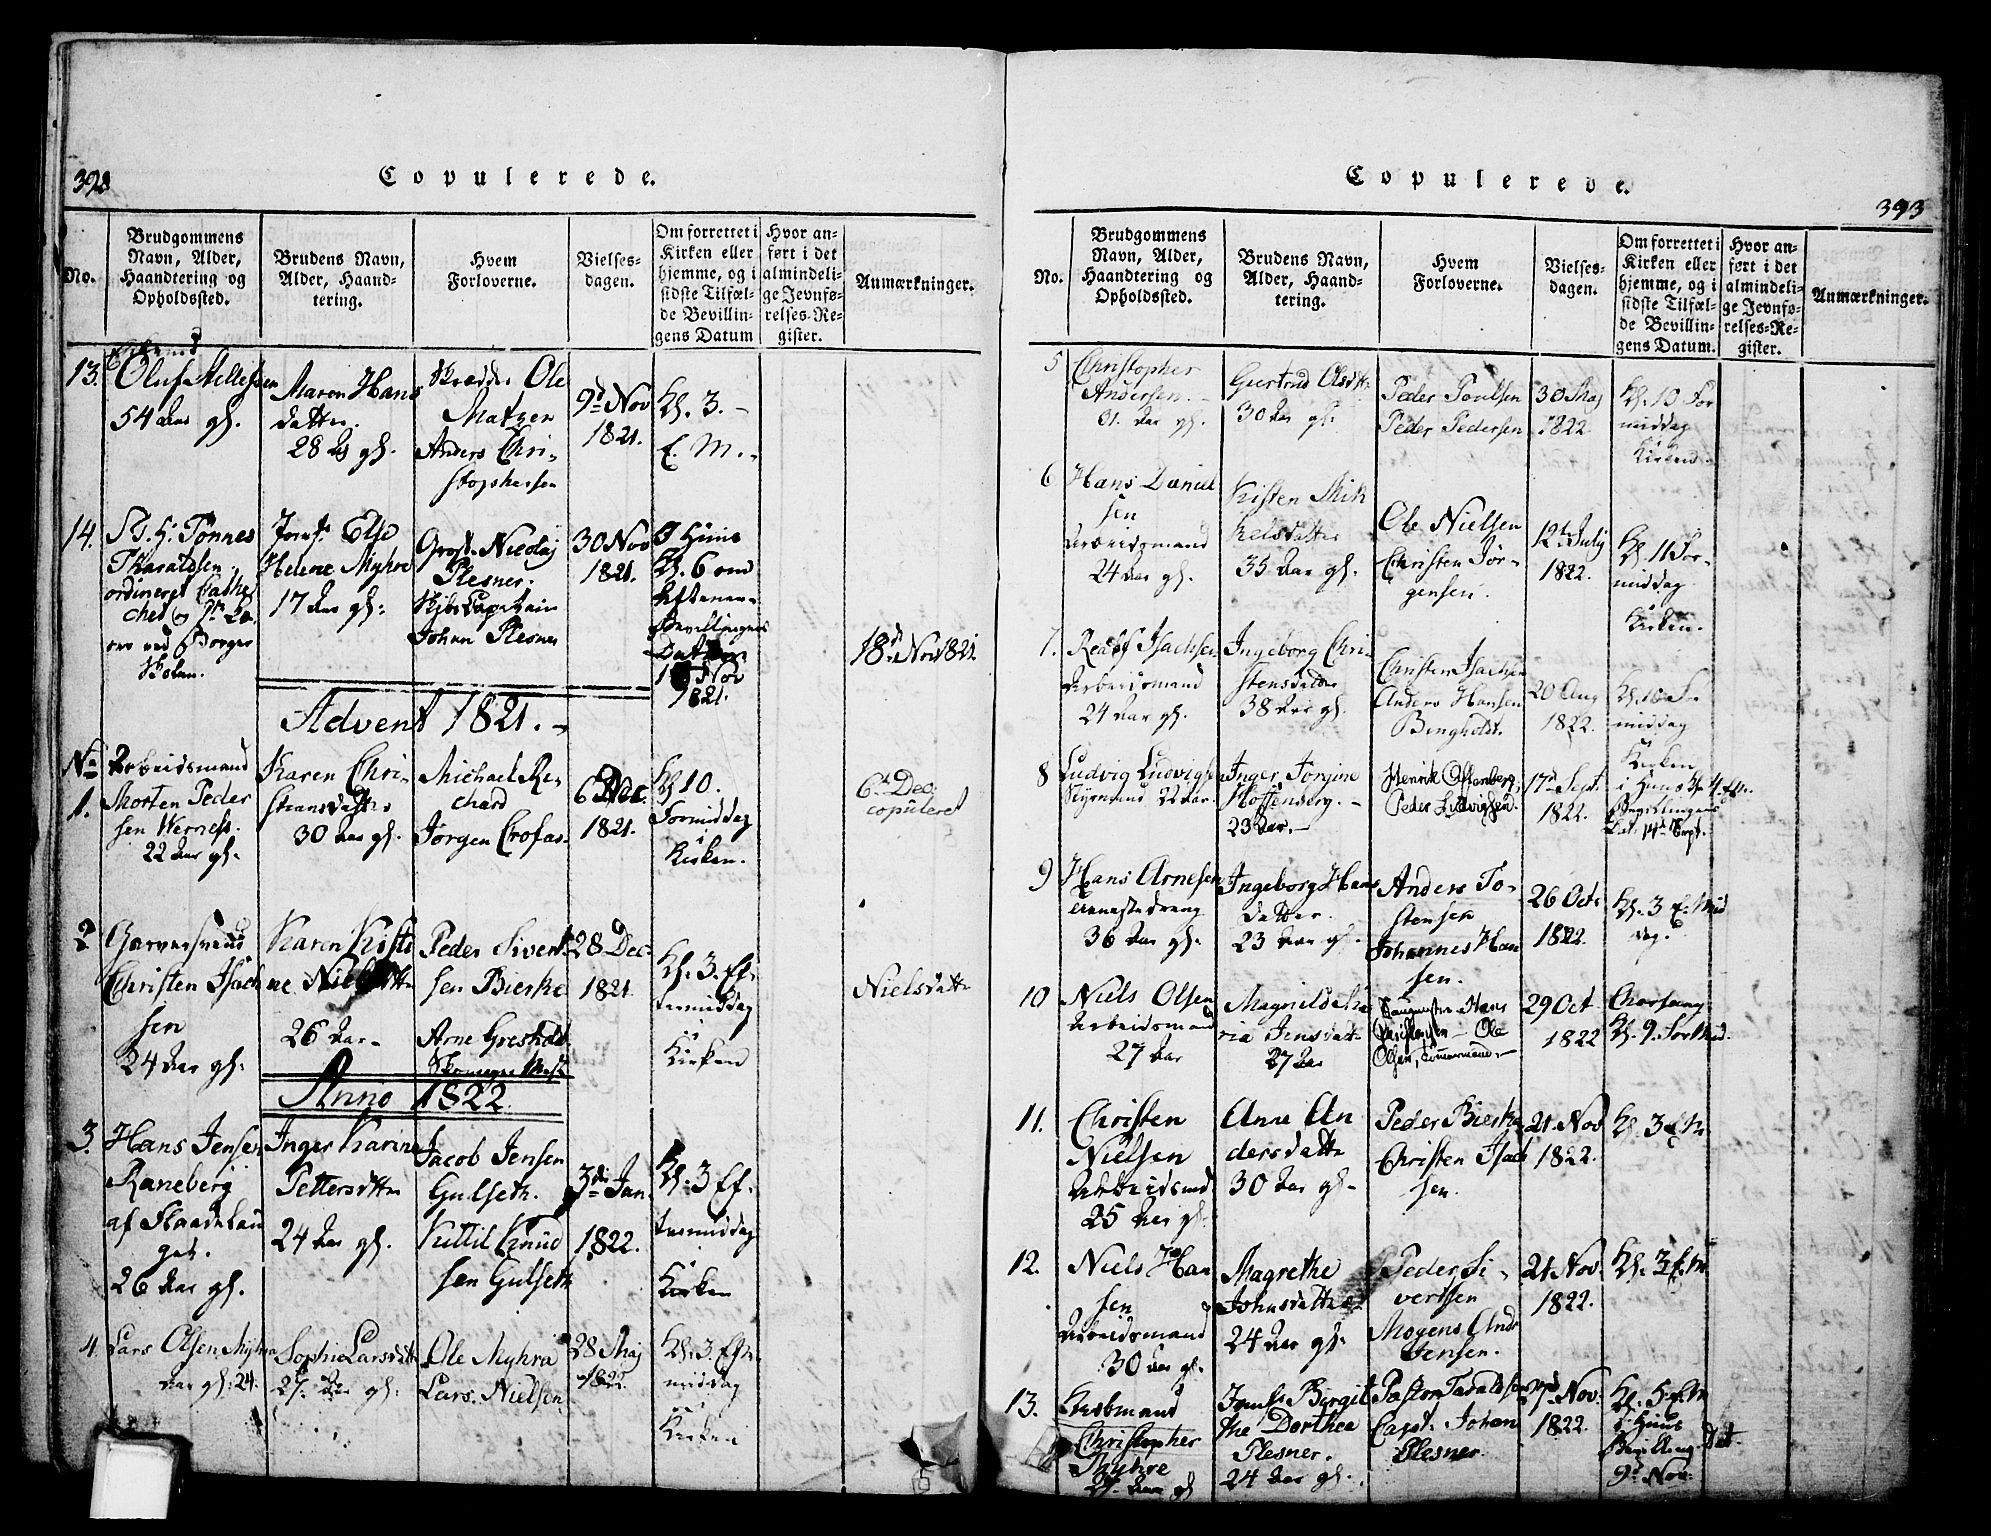 392
Copulerede.
No.
Brudgommens
Navn, Alder,
Haandtering og
Opholdssted.
Brudens Navn,
Alder, Haand-
tering.
Hvem
Forloverne.
Vielses-
dagen.
Om forrettet i
Kirken eller
hjemme, og i
sidste Tilfæl-
de Bevillin-
gens Datum
Hvor an-
ført i det
almindeli-
ge Jevnfø-
relses-Re-
gister.
Anmærkninger.
13.
Oluf
54 Aar gl.
Maren Hans
datter
28 gl.
Ole
Matzen
Anders Chri-
stophersen
9d Nov
1821.
Kl. 3.
E. M.
14.
Tønnes
Tharaldsen
ordineret Cathe
chet
ved Borger
Skolen.
Jomf. Else
Helene Myhre
17 Aar gl.
Nicolaj
Plesner.
Skibs Capitain
Johan Plesner
30 Nov
1821.
I Huus
Kl. 6 om
Aftenen
Bevillingens
Datum
Nov
1821.
18d Nov 1821
Advent 1821.
No
1.
Arbeidsmand
Morten Peder
sen Werness.
22 Aar gl.
Karen Chri-
stiansdatter
30 Aar gl.
Michael Re-
chard
Jørgen Crofas-
6 Dec.
1821.
Kl. 10.
Formiddag
i
Kirken.
6te Dec.
copuleret
2
Garversvend
Christen Isach
sen
24 Aar gl.
Karen Kisti
ne Nielsdatter
26 Aar
Peder Sivert
sen Bierke
Arne
28 Dec.
1821.
Kl. 3. Ef-
termiddag
i
Kirken
Nielsdatter
Anno 1822.
3.
Hans Jensen
Raneberg
af
26 Aar gl.
Inger Karine
Pettersdatter
24 Aar gl.
Jacob Jensen
Gulseth.
Kittil Knud
sen Gulseth
3die Jan.
1822.
Kl. 3 Ef-
termiddag
i
Kirken
4.
Lars Olsen Myhra
Aar gl. 24.
Sophie Larsdatter
27 Aar gl.
Ole Myhra
Lars Nielsen
28 Maj
1822.
Kl. 3. Efter
middag
i
Kirken
Copulerede.
393
No.
Brudgommens
Navn, Alder,
Haandtering og
Opholdssted.
Brudens Navn,
Alder, Haand-
tering.
Hvem
Forloverne.
Vielses-
dagen.
Om forrettet i
Kirken eller
hjemme, og i
sidste Tilfæl-
de Bevillin-
gens Datum.
Hvor an-
ført i det
almindeli-
ge Jevnfø-
relses-Re-
gister.
Anmærkninger.
5
Christopher
Andersen.
31. Aar gl.
Giertrud Olsdtr
30 Aar gl.
Peder Poulsen
Peder Pedersen
30 Maj
1822.
Kl. 10 For
middag
Kirken
6
Hans Daniel
sen
Arbeidsmand
24 Aar gl.
Kisten Mik
kelsdatter
35 Aar gl.
Ole Nielsen
Christen Jør-
gensen.
12te July
1822.
Kl. 11 For-
middag
i
Kirken.
7.
Isachsen
Arbeidsmand
24 Aar gl.
Ingeborg Chri-
stensdatter
38 Aar gl.
Christen Isachsen
Anders Hansen
Bingholdt.
20 Aug
1822.
Kl. 10 For
middag
Kirken
8
Ludvig Ludvigs
Styrmand 22 Aar.
Inger Jorgine
23 Aar.
Henrik
Peder Ludvigsen
17d Sept.
1822.
i Huus Kl. 4. Efm.
Bevillingens
Dat. 14d Sept.
9
Hans Arnesen
36 Aar gl.
Ingeborg Hans
datter.
23 Aar gl.
Anders To-
stensen
Johannes Han
sen.
26 Octr
1822.
Kl. 3 E. Mid
dag.
10
Niels Olsen
Arbeidsmand
27 Aar
Magnild Ma
ria Jensdatter
27 Aar
Hans
Ole
Olsen, Tømmermænd
29 Oct
1822
Kl. 9. Formid.
11.
Christen
Nielsen
Arbeidsmd
25 Aar gl.
Anne An
dersdatter
30 Aar gl.
Peder Bierke
Christen Isach
sen.
21. Nov
1822.
Kl. 3 Efm
12.
Niels Han
sen
Arbeidsmand
30 Aar gl.
Magrethe
Johnsdatter
24 Aar gl.
Peder Si-
vertsen
Mogens
Jensen.
21. Nov.
1822.
Kl. 3 Efm
13.
Kiøbmand
Christopher
Myhre
27. Aar gl
Jomf. Birgit
the Dorthea
Plesner.
24 Aar gl.
Pastor Taraldsen
Capt. Johan
Plesner
Nov.
1822.
Kl. 5 Efm
i Huus
Bevilling Dat.
9d Nov.